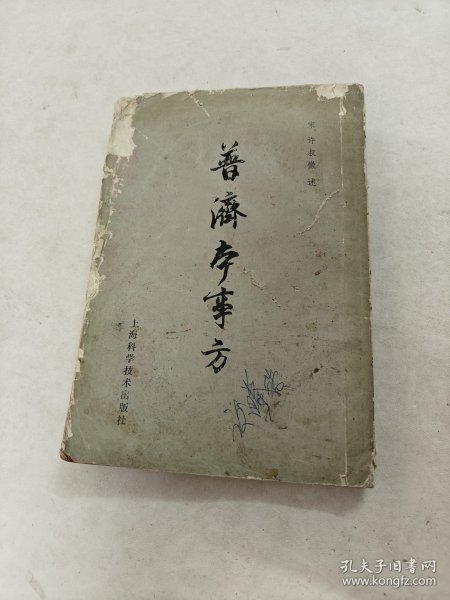 宋 许叔微 述
普济本事方
上海科学技术出版社
孔夫子旧书网
www.kongfz.com